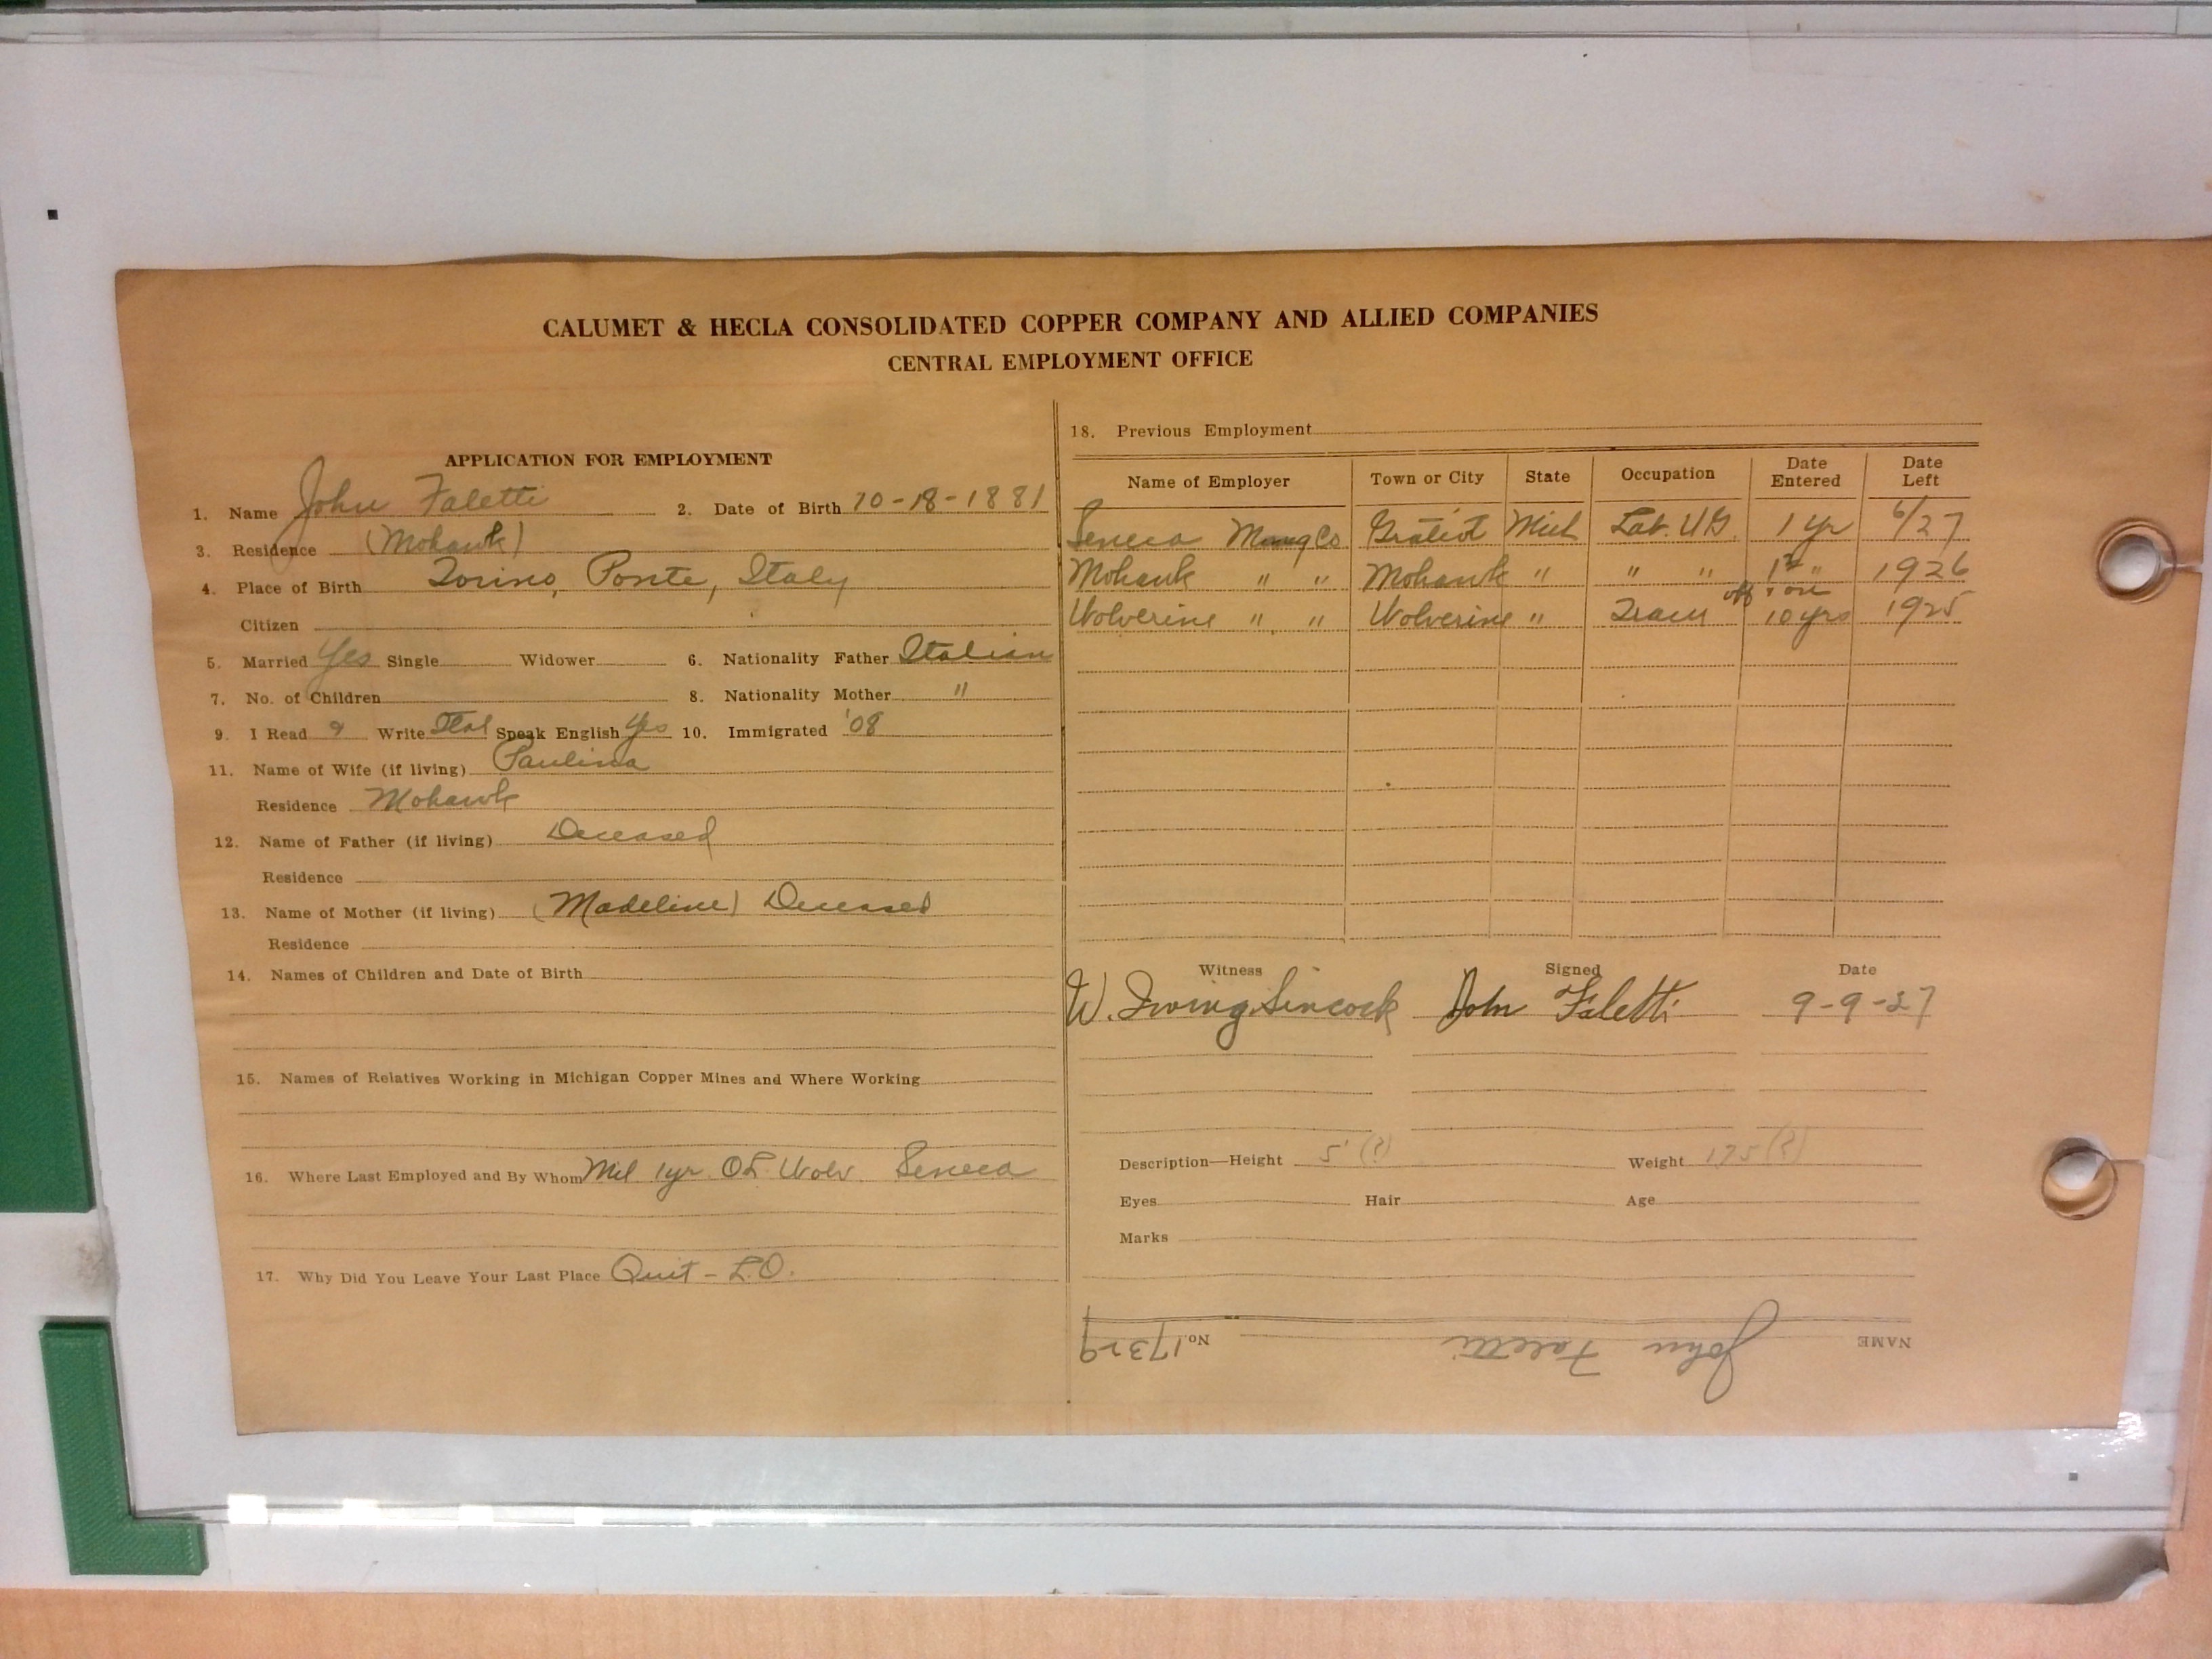 CALUMET & HECLA CONSOLIDATED COPPER COMPANY AND ALLIED COMPANIES
CENTRAL EMPLOYMENT OFFICE
APPLICATION FOR EMPLOYMENT
1. Name John Faletti 2. Date of Birth 10-18-1881
3. Residence (Mohawk)
4. Place of Birth Torino, Ponte, Italy
Citizen
5. Married Yes Single Widower 6. Nationality Father Italian
7. No. of Children 8. Nationality Mother "
9. I Read & Write Ital Speak English Yes 10. Immigrated '08
11. Name of Wife (if living) Paulina
Residence Mohawk
12. Name of Father (if living) Deceased
Residence
13. Name of Mother (if living) (Madeline) Deceased
Residence
14. Names of Children and Date of Birth
15. Names of Relatives Working in Michigan Copper Mines and Where Working
16. Where Last Employed and By Whom Mil 1yr. OL. Wolv. Seneca
17. Why Did You Leave Your Last Place Quit - L.O.
18. Previous Employment
Name of Employer Town or City State Occupation Date Entered Date Left
Seneca Mining Co Gratiot Mich Lab. U.G. 1 yr 6/27
Mohawk " " Mohawk " " " " 1926
Wolverine " " Wolverine " Tram off & on 10 yrs 1925
Witness Signed Date
W. Irving Sincock John Faletti 9-9-27
Description—Height 5' (?) Weight 175 (?)
Eyes Hair Age
Marks
NAME John Faletti No. 17329